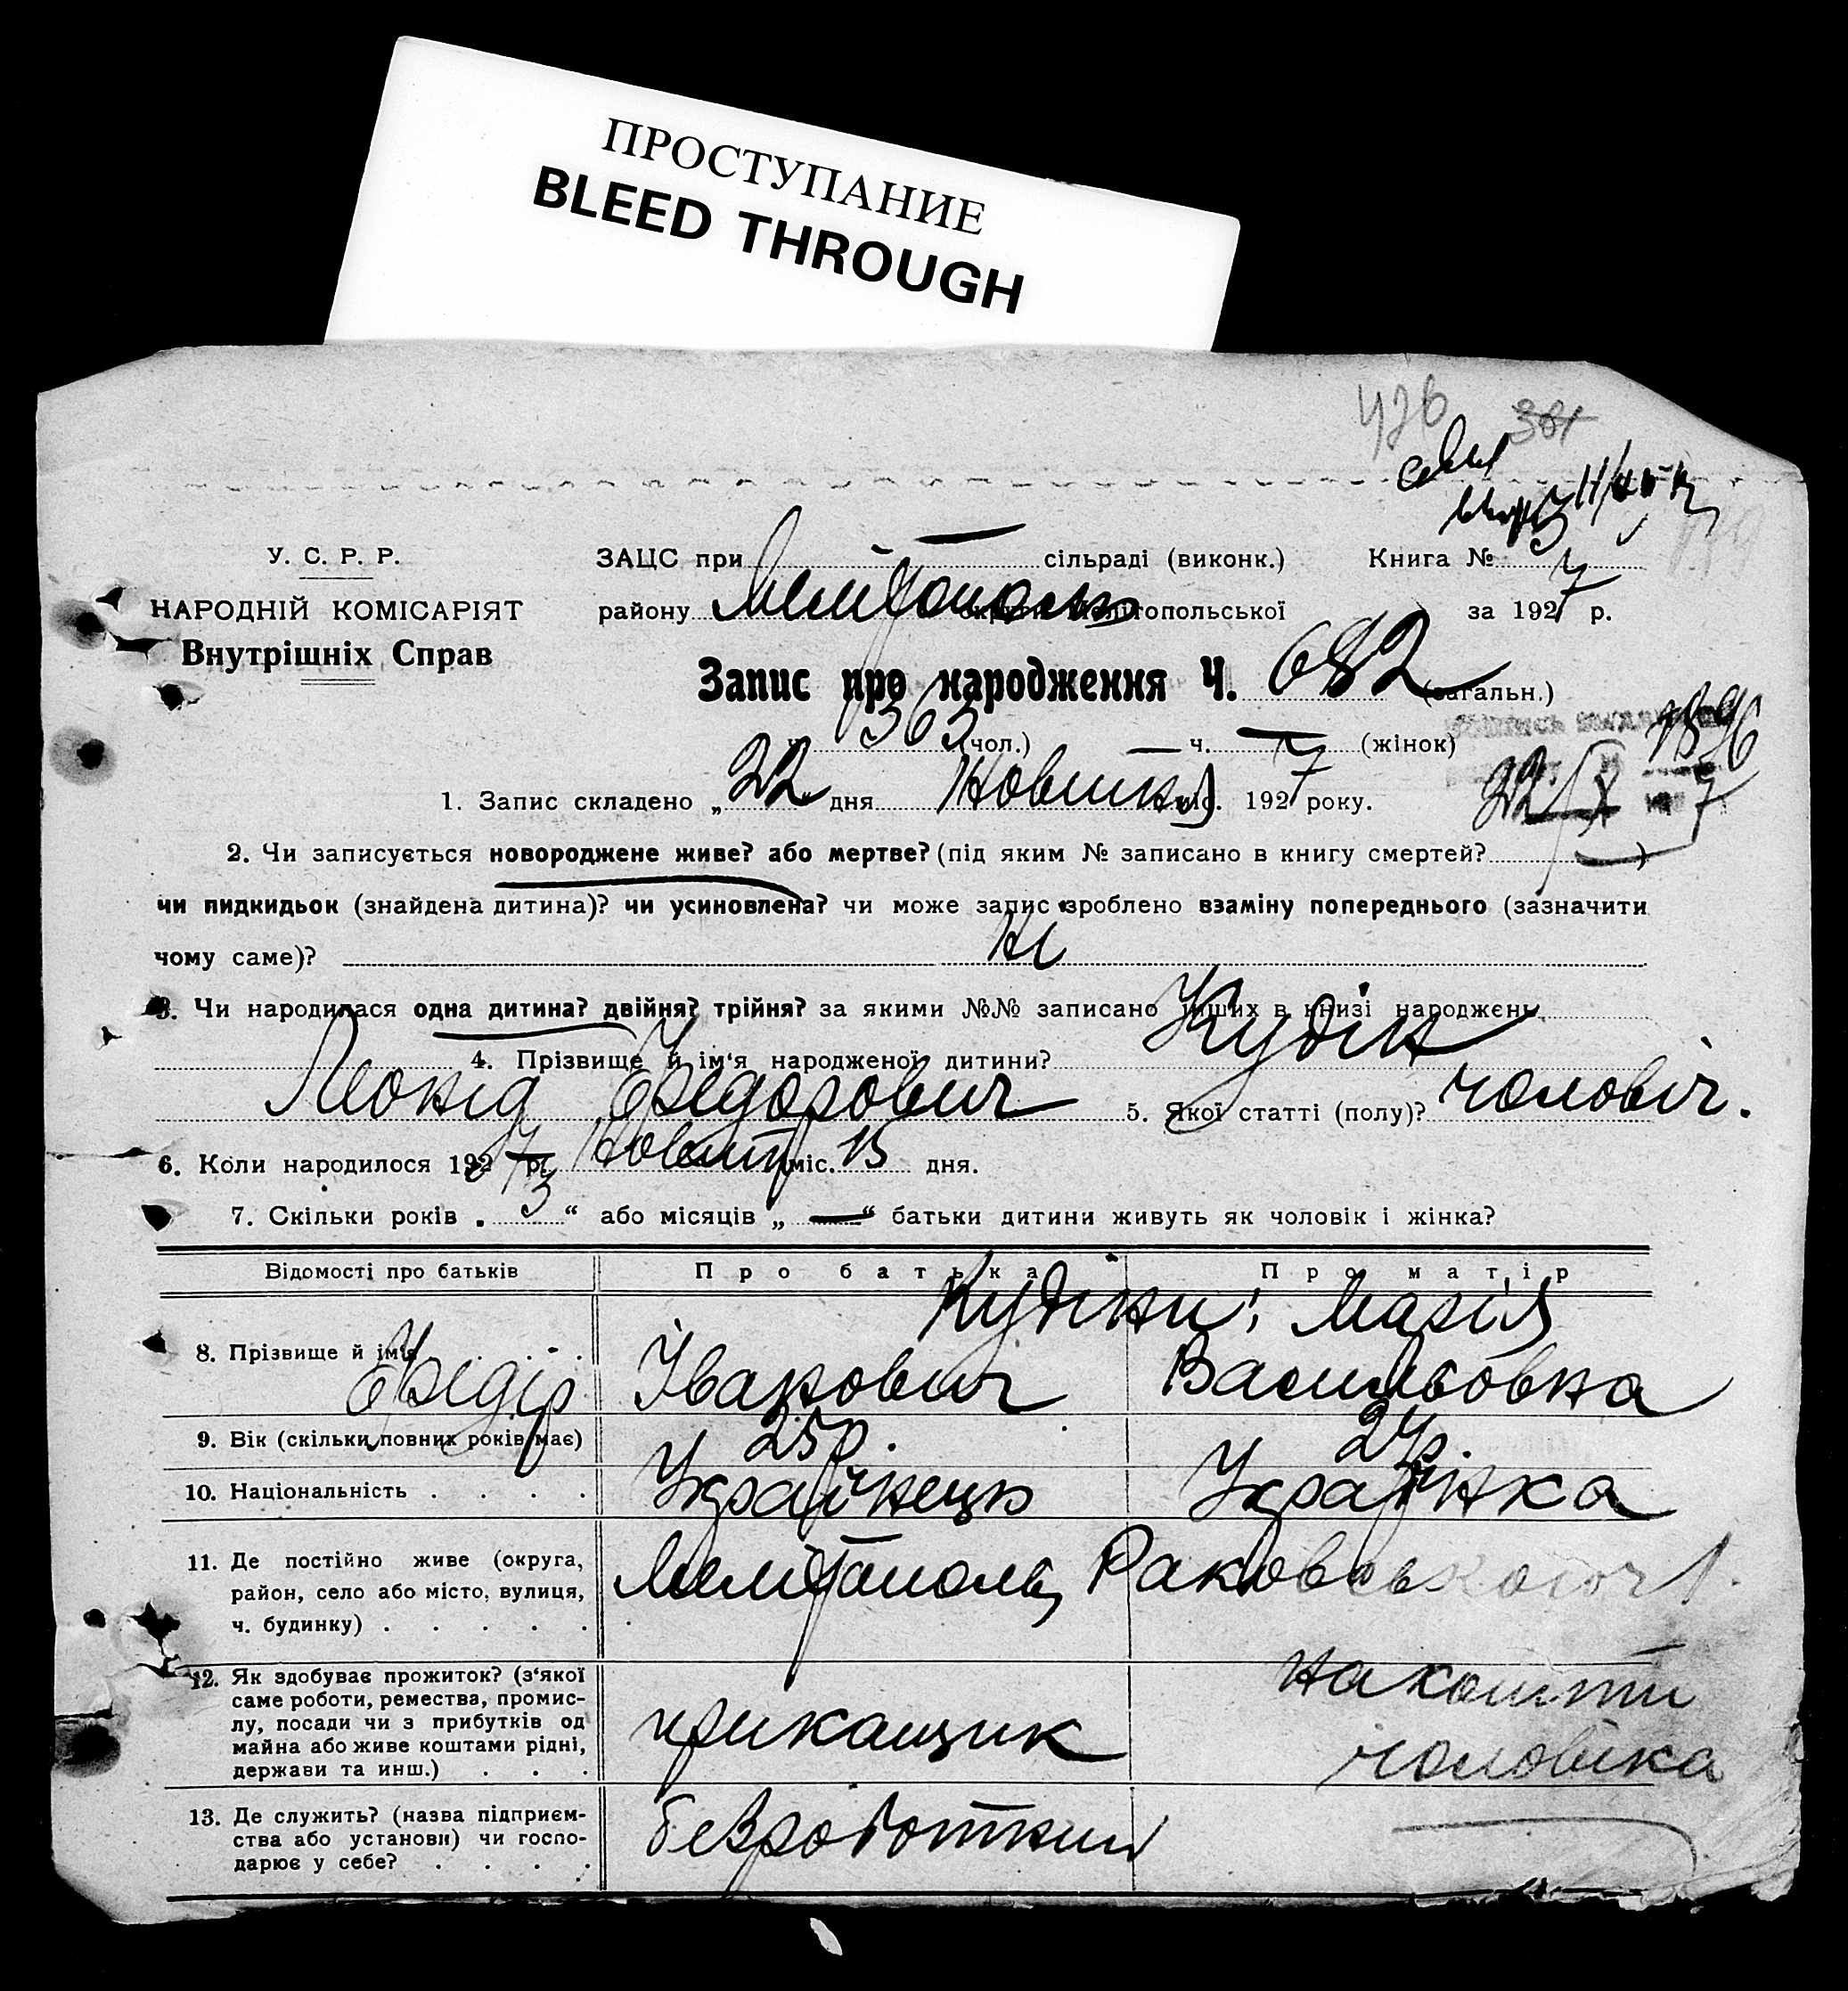 ПРОСТУПАНИЕ
BLEED THROUGH
426 381
У. С. Р. Р. ЗАЦС при сільраді (виконк.) Книга № 7
НАРОДНІЙ КОМІСАРІЯТ району Мелітополь округи Мелітопольської за 1927 р.
Внутрішніх Справ
Запис про народження Ч. 682 (загальн.)
ч. 363 (чол.) — ч. — (жінок)
1. Запис складено „22" дня Жовтня міс. 1927 року.
2. Чи записується новороджене живе? або мертве? (під яким № записано в книгу смертей? —)
чи пидкидьок (знайдена дитина)? чи усиновлена? чи може запис зроблено взаміну попереднього (зазначити
чому саме)? Ні
3. Чи народилася одна дитина? двійня? трійня? за якими №№ записано інших в книзі народжень
4. Прізвище й ім'я народженої дитини? Кудін
Леонід Федорович 5. Якої статті (полу)? чоловіч.
6. Коли народилося 1927 р. Жовтн міс. 15 дня.
7. Скільки років „3" або місяців „—" батьки дитини живуть як чоловік і жінка?
Відомості про батьків Про батька Про матір
Кудіни; Марія
8. Прізвище й ім'я Федір Іванович Васильовна
9. Вік (скільки повних років має) 25 р. 24 р.
10. Національність Українець Українка
11. Де постійно живе (округа,
район, село або місто, вулиця,
ч. будинку) Мелітополь, Раковського ч 1.
12. Як здобуває прожиток? (з'якої
саме роботи, ремества, промис-
лу, посади чи з прибутків од
майна або живе коштами рідні,
держави та инш.) прикащик на кошти
чоловіка
13. Де служить? (назва підприєм-
ства або установи) чи госпо-
дарює у себе? безроботний